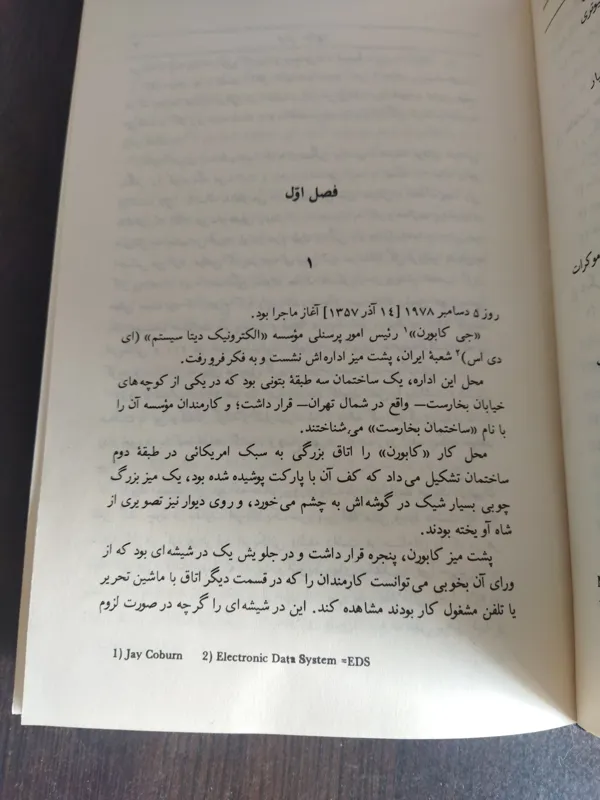 فصل اوّل
۱
روز ۵ دسامبر ۱۹۷۸ [۱۴ آذر ۱۳۵۷] آغاز ماجرا بود.
«جی کابورن»۱ رئیس امور پرسنلی مؤسسه «الکترونیک دیتا سیستم» (ای
دی اس)۲ شعبهٔ ایران، پشت میز اداره‌اش نشست و به فکر فرو رفت.
محل این اداره، یک ساختمان سه طبقهٔ بتونی بود که در یکی از کوچه‌های
خیابان بخارست— واقع در شمال تهران— قرار داشت؛ و کارمندان مؤسسه آن را
با نام «ساختمان بخارست» می‌شناختند.
محل کار «کابورن» را اتاق بزرگی به سبک امریکائی در طبقهٔ دوم
ساختمان تشکیل می‌داد که کف آن با پارکت پوشیده شده بود، یک میز بزرگ
چوبی بسیار شیک در گوشه‌اش به چشم می‌خورد، و روی دیوار نیز تصویری از
شاه آویخته بودند.
پشت میز کابورن، پنجره قرار داشت و در جلویش یک در شیشه‌ای بود که از
ورای آن بخوبی می‌توانست کارمندان را که در قسمت دیگر اتاق با ماشین تحریر
یا تلفن مشغول کار بودند مشاهده کند. این در شیشه‌ای را گرچه در صورت لزوم
1) Jay Coburn 2) Electronic Data System =EDS
یوتری
بار
موکرات